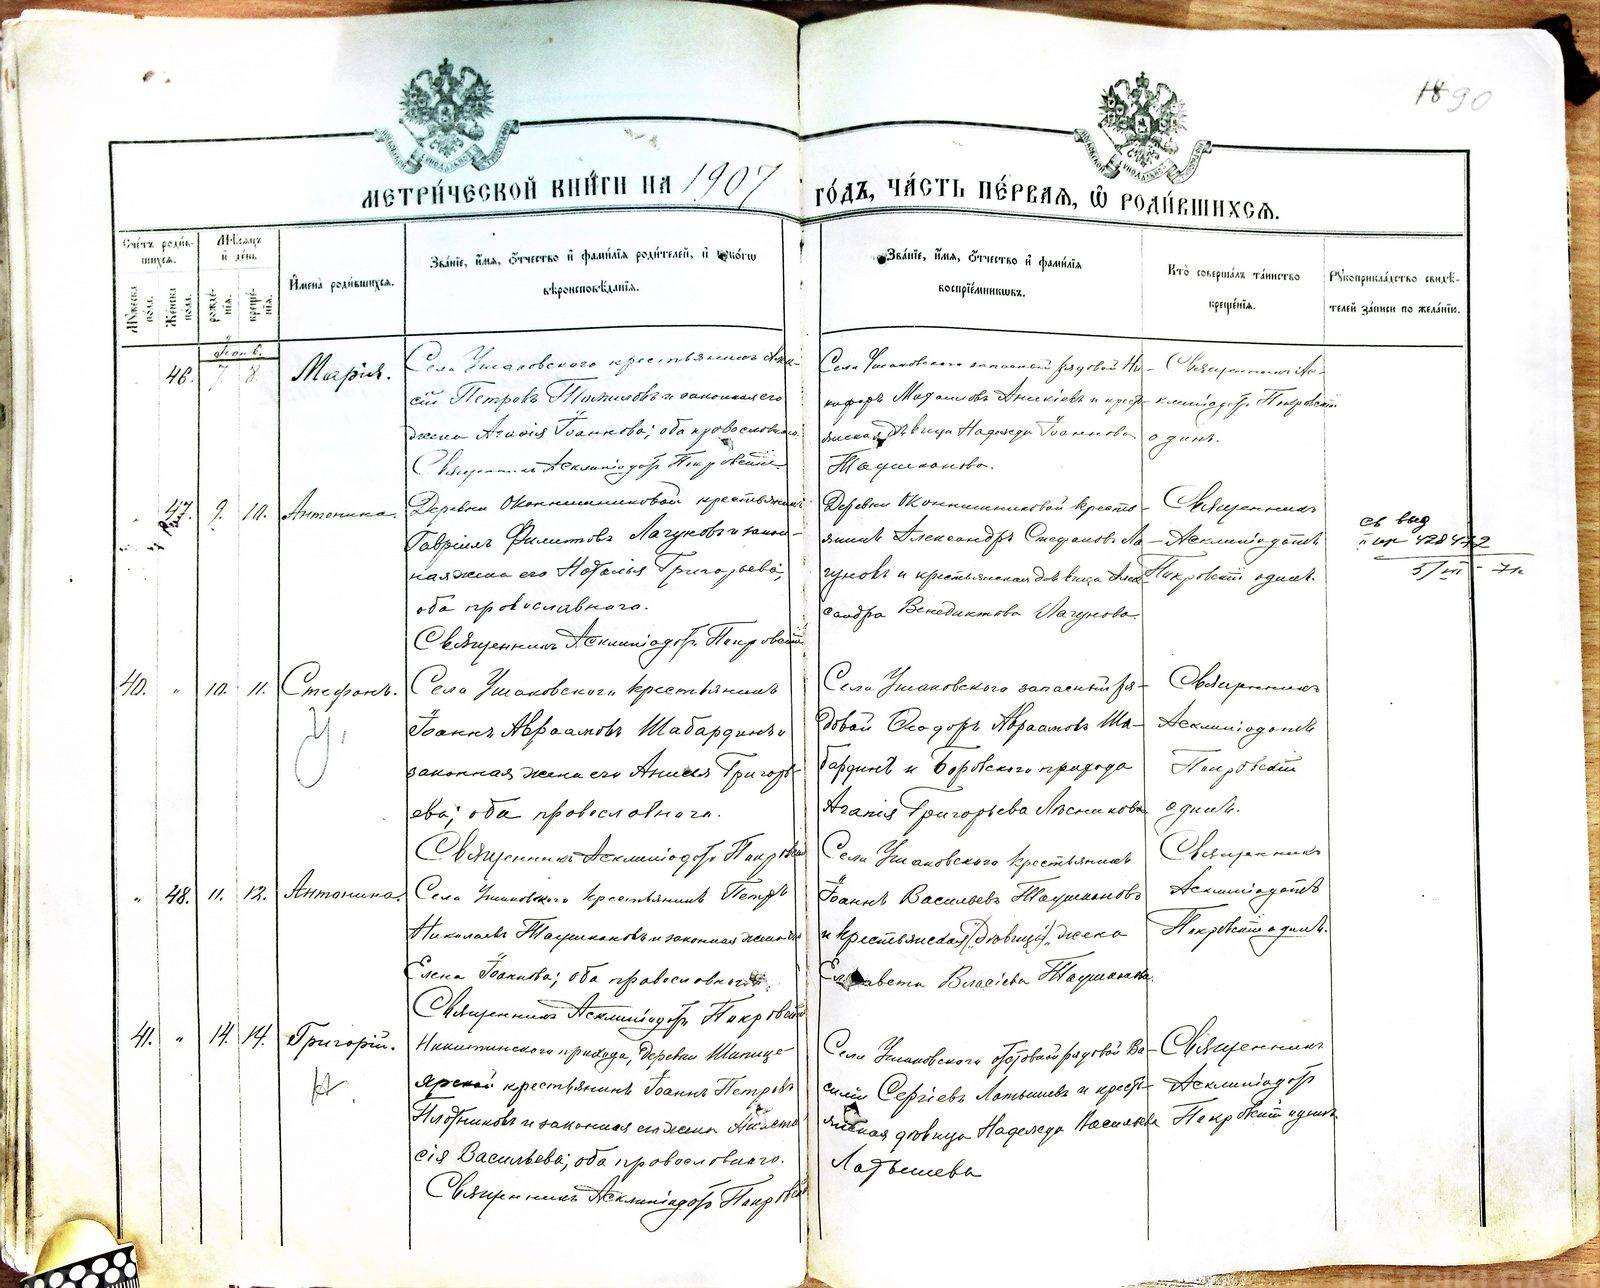 1890
МЕТРИ́ЧЕСКОЙ КНИ́ГИ НА 1907 ГО́ДЪ, ЧА́СТЬ ПЕ́РВАЯ, Ѿ РОДИ́ВШИХСѦ.
Сче́тъ роди́в-
шихсѧ.
Мꙋ́жеска по́ла.
Же́нска по́ла.
Мѣ́сѧцъ и҆ де́нь
рожде́-
нїѧ.
креще́-
нїѧ.
И҆мена̀ роди́вшихсѧ.
Зва́нїе, и҆́мѧ, ѻ҆́тчество и҆ фами́лїѧ роди́телей, и҆ како́гѡ
вѣроисповѣ́данїѧ.
Зва́нїе, и҆́мѧ, ѻ҆́тчество и҆ фами́лїѧ
воспрїе́мникѡвъ.
Кто̀ соверша́лъ та́инство
креще́нїѧ.
Рꙋкоприкла́дство свидѣ́-
телей за́писи по жела́нїю.
46. 7 8. Марія.
Села Ушаковскаго крестьянинъ
Петровъ и законная его
жена Агафія Іоаннова; оба православнаго.
Священникъ Асклипіодотъ Покровскій
Села Ушаковскаго запасный рядовой Ни-
кифоръ и кресть-
янская дѣвица Надежда Іоаннова
Таушканова.
Священникъ Ас-
клипіодотъ Покровскій
одинъ.
47. 9. 10. Антонина.
Деревни крестьянинъ
Гавріилъ Филиповъ Лагуновъ и закон-
ная жена его Наталья Григорьева;
оба православнаго.
Священникъ Асклипіодотъ Покровскій
Деревни кресть-
янинъ Александръ Стефановъ Ла-
гуновъ и крестьянская дѣвица Алек-
сандра Венедиктова Лагунова.
Священникъ
Асклипіодотъ
Покровскій одинъ.
св выд
428472
5/III - 71
40. " 10. 11. Стефанъ.
У.
Села Ушаковскаго крестьянинъ
Іоаннъ Авраамовъ Шабардинъ и
законная жена его Анисія Григорь-
ева; оба православнаго.
Священникъ Асклипіодотъ Покровскій
Села Ушаковскаго запасный ря-
довой Ѳеодоръ Авраамовъ Ша-
бардинъ и Боровского прихода
Агапія Григорьева Лѣсникова
Священникъ
Асклипіодотъ
Покровскій
одинъ.
" 48. 11. 12. Антонина.
Села Ушаковскаго крестьянинъ Петръ
Николаевъ Таушкановъ и законная жена его
Елена Іоаннова; оба православнаго.
Священникъ Асклипіодотъ Покровскій
Села Ушаковскаго крестьянинъ
Іоаннъ Васильевъ Таушкановъ
и крестьянская (дѣвица) жена
Елизавета Власіева Таушканова.
Священникъ
Асклипіодотъ
Покровскій одинъ.
41. " 14. 14. Григорій.
Никитинскаго прихода, деревни
крестьянинъ Іоаннъ Петровъ
Плотниковъ и законная его жена Анаста-
сія Васильева; оба православнаго.
Священникъ Асклипіодотъ Покровскій
Села Ушаковскаго рядовой Ва-
силій Сергіевъ Латышевъ и кресть-
янская дѣвица Надежда Васильева
Латышева
Священникъ
Асклипіодотъ
Покровскій одинъ